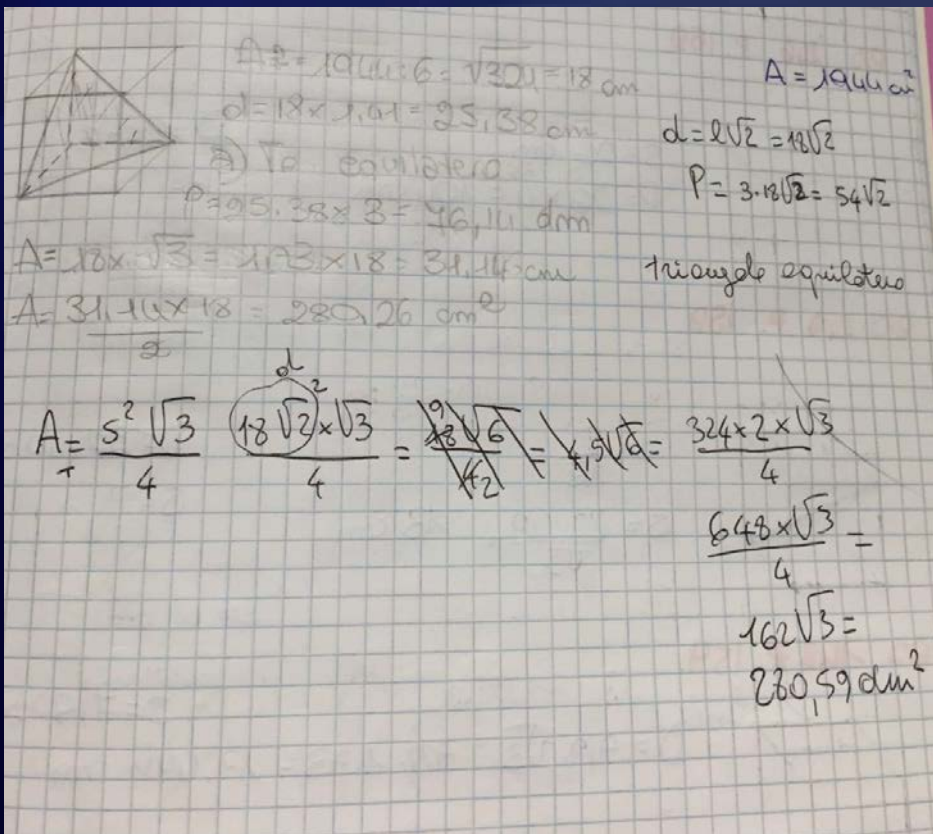 A2 = 1944:6 = √324 = 18 cm
d = 18 × 1,41 = 25,38 cm
equilatero
P = 25.38 × 3 = 76,14 dm
A = 18 × √3 = 1,73 × 18 = 31,14 cm
A = 31,14 × 18 / 2 = 280,26 dm²
A = 1944 cm²
d = l√2 = 18√2
P = 3·18√2 = 54√2
triangolo equilatero
d
A_T = s²√3 / 4 (18√2)² × √3 / 4 = 18√6 / 4 2 = 4,5√6 = 324×2×√3 / 4
648×√3 / 4 =
162√3 =
280,59 dm²